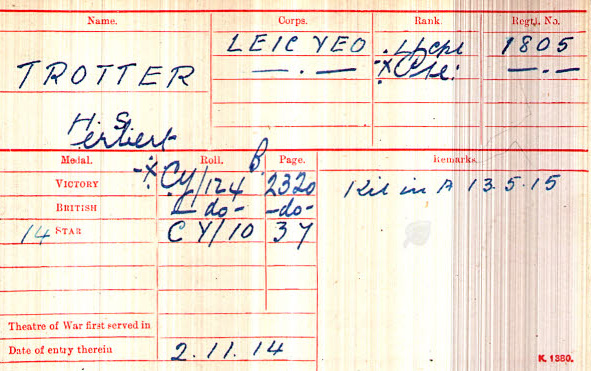 Name. Corps. Rank. Regtl. No.
TROTTER LEIC YEO L/Cpl 1805
— . — x Cpl. — . —
H. S.
Herbert
Medal. Roll. Page. Remarks.
VICTORY x CY/124 B 2320 Kil in A 13.5.15
BRITISH - do - - do -
14 STAR CY/10 37
Theatre of War first served in
Date of entry therein 2.11.14
K. 1380.